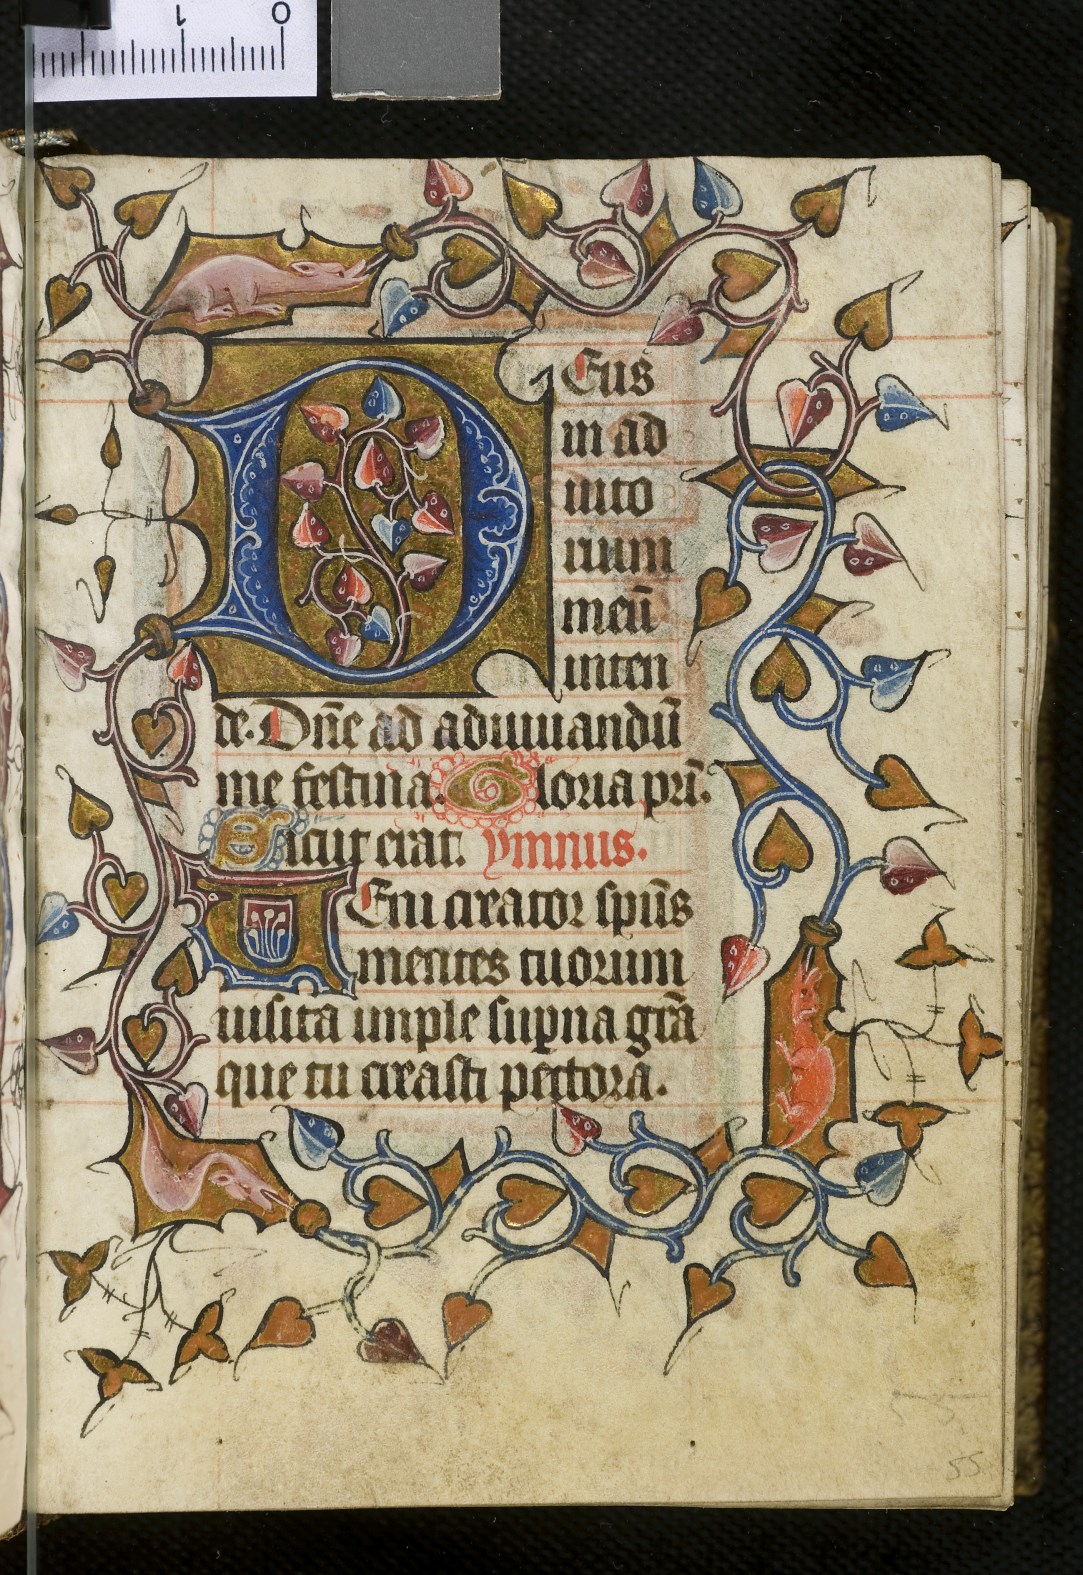 1 0
Deus
in ad
iuto
rium
meū
inten
de. Dn̄e ad adiuuandū
me festina. Gloria pr̄i.
Sicut erat. ymnus.
Ueni creator sp̄us
mentes tuorum
uisita imple suꝑna gr̄a
que tu creasti pectora.
55